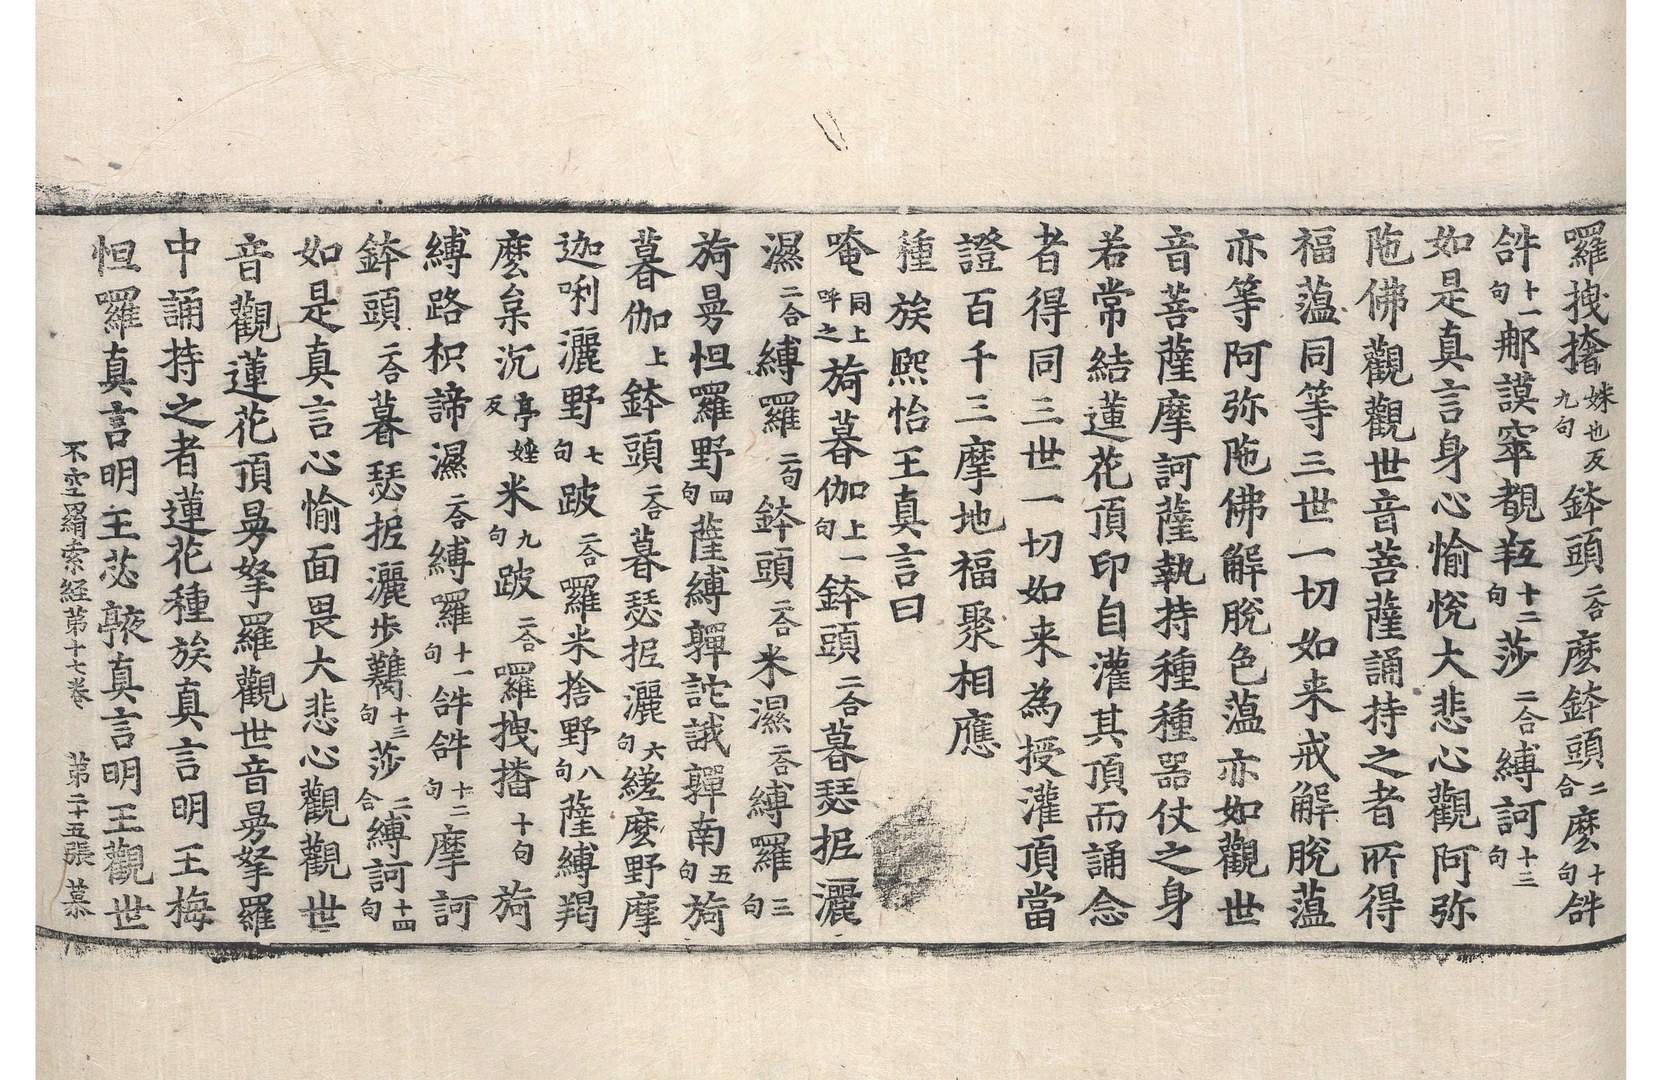 囉拽㩉妹也反九句鉢頭二合麽鉢頭二合麽十句𤙖
𤙖十一句那謨窣覩羝十二句莎二合縛訶十三句
如是真言身心愉悅大悲心觀阿弥
陁佛觀觀世音菩薩誦持之者所得
福藴同等三世一切如来戒解脫藴
亦等阿弥陁佛解脫色藴亦如觀世
音菩薩摩訶薩執持種種器仗之身
若常結蓮花頂印自灌其頂而誦念
者得同三世一切如来為授灌頂當
證百千三摩地福聚相應
種族熙怡王真言曰
唵同上呼之旖暮伽上一句鉢頭二合暮瑟抳灑
濕二合縛羅二句鉢頭二合米濕二合縛羅三句
旖曼怛囉野四句薩縛嚲詑誐嚲南五句旖
暮伽上鉢頭二合暮瑟抳灑六句縒麽野摩
迦唎灑野七句跛二合囉米捨野八句薩縛羯
麽枲沉亭㛗反米九句跛二合囉拽播十句旖
縛路枳諦濕二合縛羅十一句𤙖𤙖十二句摩訶
鉢頭二合暮瑟抳灑步鸈十三句莎二合縛訶十四句
如是真言心愉面畏大悲心觀觀世
音觀蓮花頂曼拏羅觀世音曼拏羅
中誦持之者蓮花種族真言明王梅
怛囉真言明王苾㪟真言明王觀世
不空羂索經苐十七卷 苐二十五張 慕